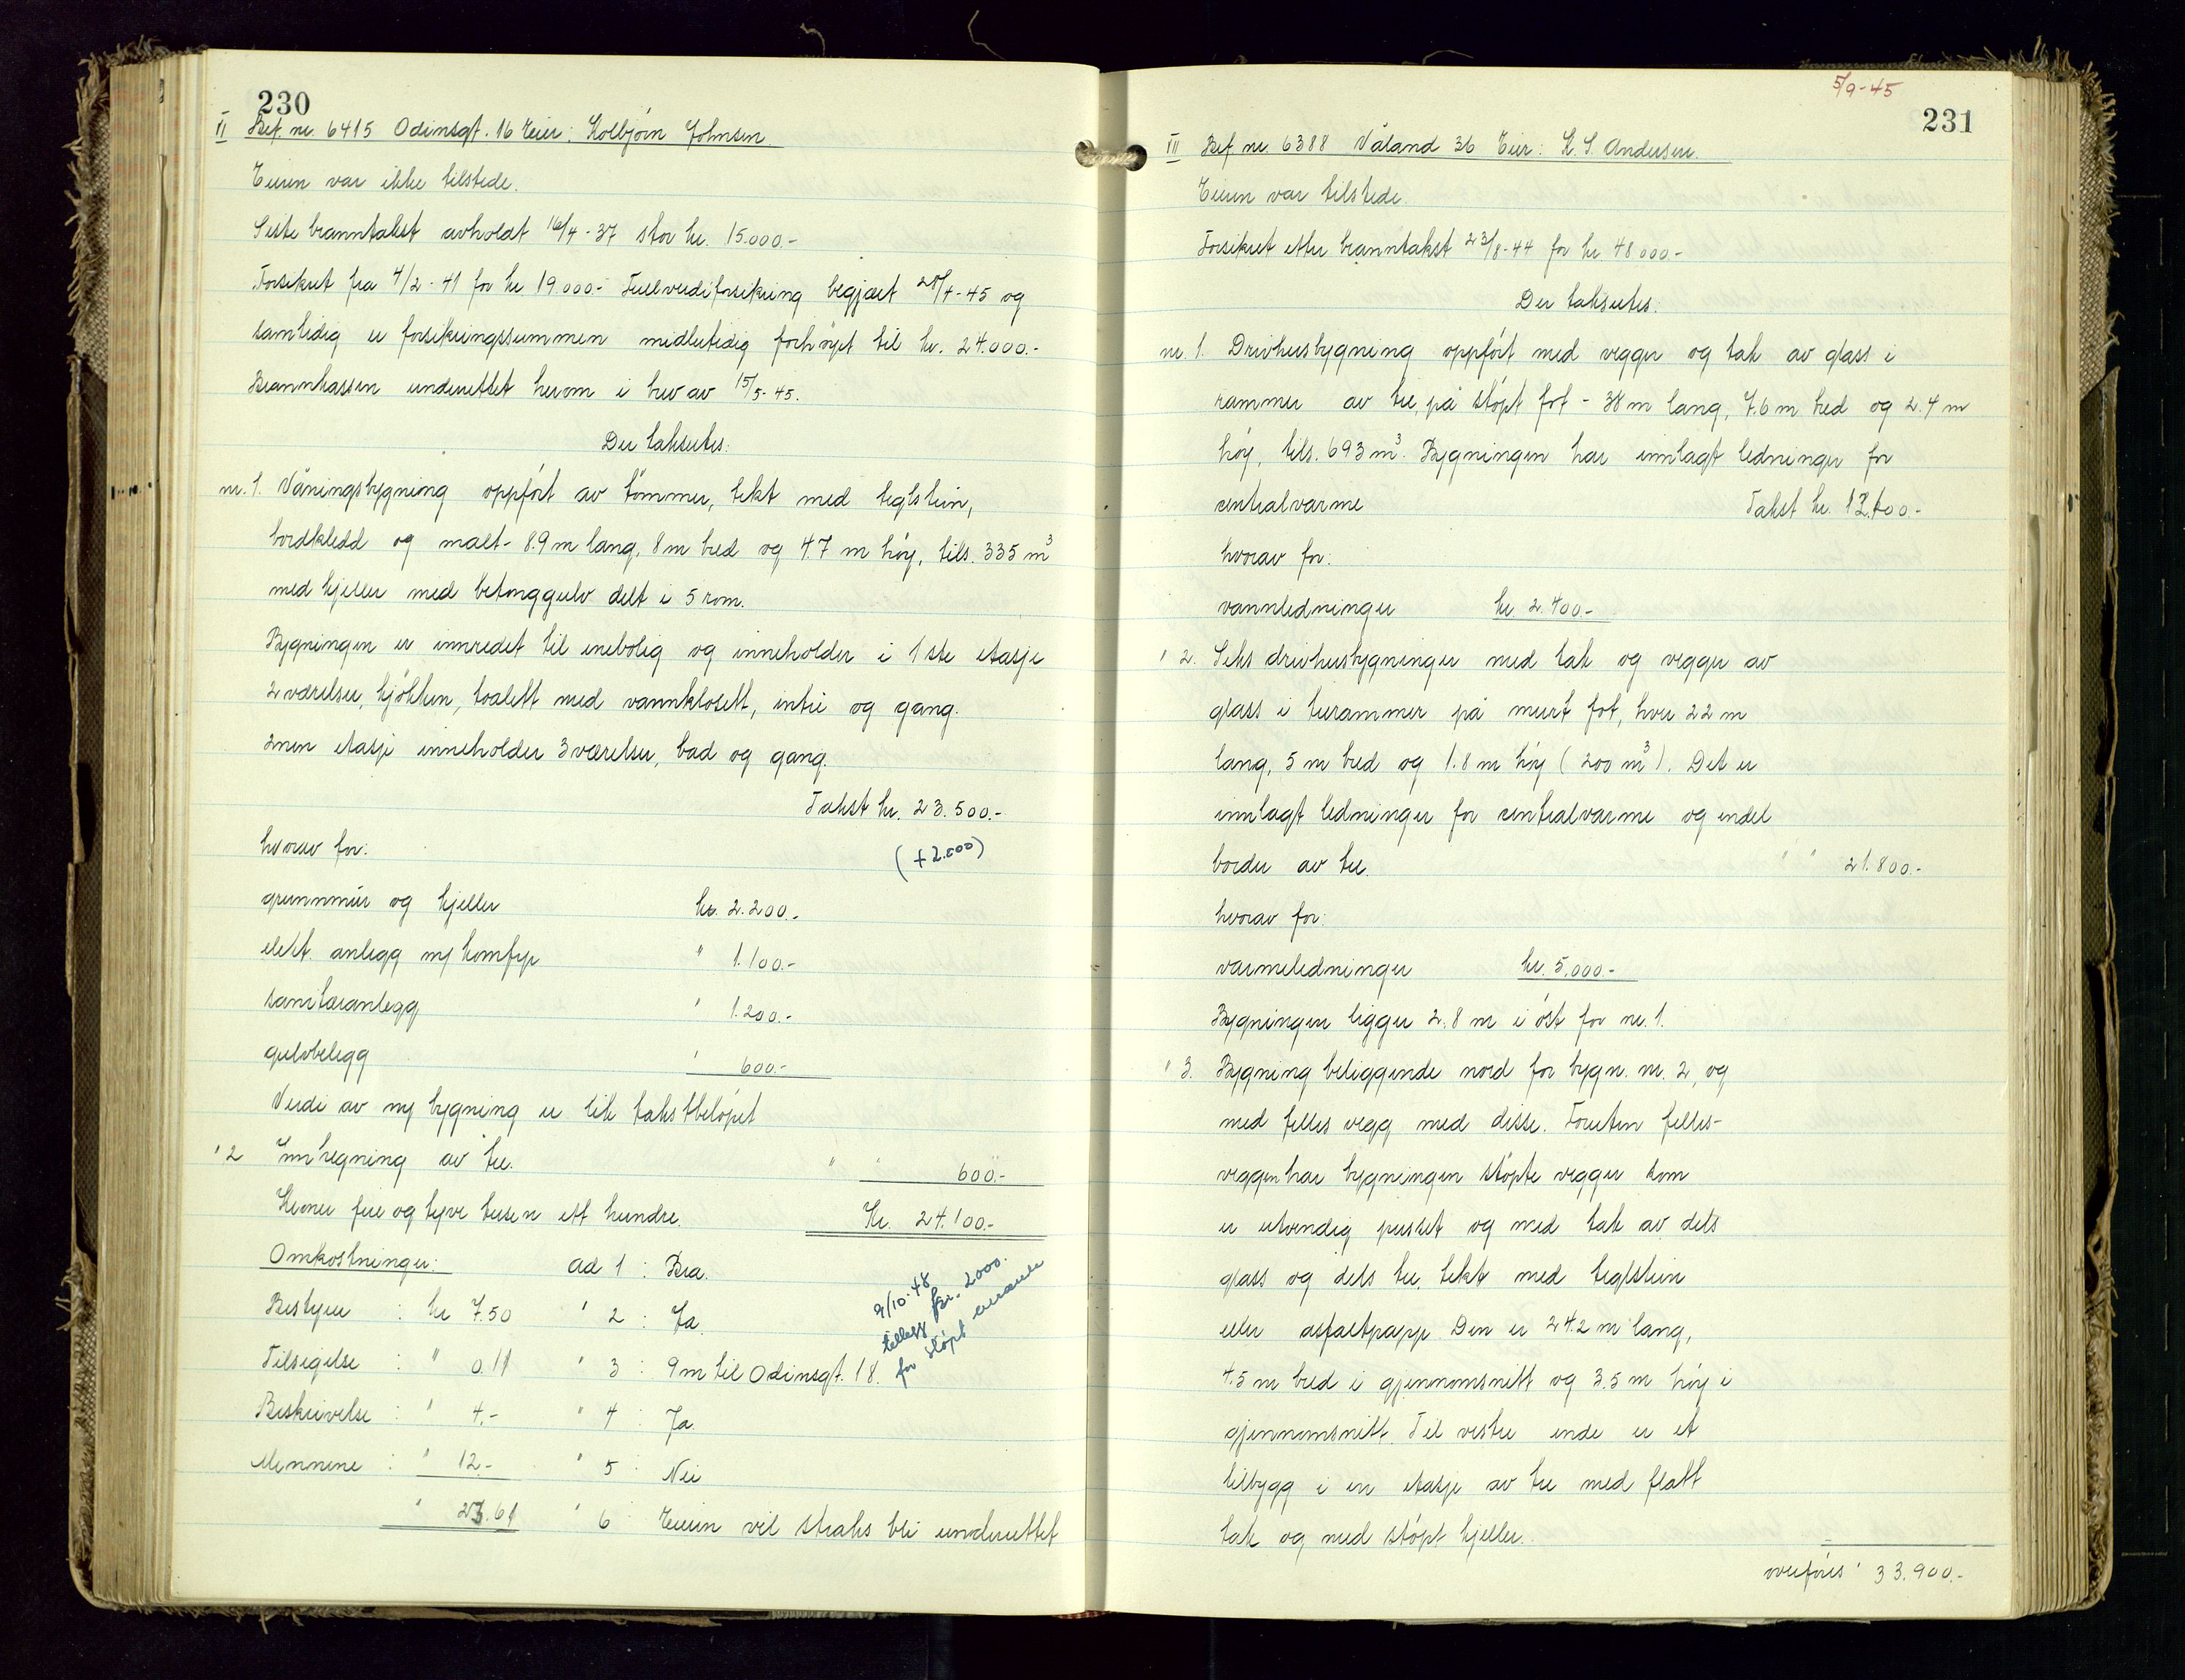 230
VI Bef. nr. 6415 Odinsgt. 16 Eier: Kolbjörn Johnsen
Eieren var ikke tilstede.
Siste branntakst avholdt 16/4-37 stor kr. 15.000.-
Forsikret fra 4/2-41 for kr 19.000.- Fullverdiforsikring begjært 28/4-45 og
samtidig er forsikringssummen midlertidig forhöyet til kr. 24.000.-
Brannkassen underrettet herom i brev av 15/5-45.
Der takseres:
nr. 1. Våningsbygning oppfört av tömmer, tekt med teglstein,
bordkledd og malt - 8.9 m lang, 8 m bred og 4.7 m höy, tils. 335 m³
med kjeller med betonggulv delt i 5 rom.
Bygningen er innredet til enebolig og inneholder i 1ste etasje
2 værelser, kjökken, toalett med vannklosett, entre og gang.
2nen etasje inneholder 3 værelser, bad og gang.
Takst kr. 23.500.-
hvorav for: (+2.000)
grunnmur og kjeller kr. 2.200.-
elekt. anlegg m/ komfyr " 1.100.-
sanitæranlegg " 1.200.-
gulvbelegg " 600.-
Verdi av ny bygning er lik takstbelöpet
" 2 Innhegning av tre. " " 600.-
Kroner fire og tyve tusen ett hundre. Kr. 24.100.-
Omkostninger: ad 1 : Bra.
Bestyrer : kr 7.50 " 2 : Ja.
Tilsigelse : " 0.11 " 3 : 9 m til Odinsgt. 18.
Beskrivelse : " 4.- " 4 : Ja.
Mennene : " 12.- " 5 : Nei
" 23.61 " 6 Eieren vil straks bli underrettet
9/10-48
tillegg kr. 2000.
for stöpt
5/9-45
231
VII Bef nr. 6388 Våland 36 Eier: K. S. Andersen.
Eieren var tilstede.
Forsikret etter branntakst 23/8-44 for kr 48000.-
Der takseres:
nr. 1. Drivhusbygning oppfört med vegger og tak av glass i
rammer av tre, på stöpt fot - 38 m lang, 7.6 m bred og 2.4 m
höy, tils. 693 m³. Bygningen har innlagt ledninger for
sentralvarme Takst kr. 12.100.-
hvorav for:
vannledninger kr 2.400.-
" 2. Seks drivhusbygninger med tak og vegger av
glass i trerammer på murt fot, hver 22 m
lang, 5 m bred og 1.8 m höy (200 m³). Det er
innlagt ledninger for sentralvarme og endel
border av tre. " " 21.800.-
hvorav for:
varmeledninger kr. 5.000.-
Bygningen ligger 2.8 m i öst for nr. 1.
" 3. Bygning beliggende nord for bygn. nr. 2, og
med felles vegg med disse. Foruten felles-
veggen har bygningen stöpte vegger som
er utvendig pusset og med tak av dels
glass og dels tre, tekt med teglstein
eller asfaltpapp. Den er 24.2 m lang,
4.5 m bred i gjennomsnitt og 3.5 m höy i
gjennomsnitt. Til vestre ende er et
tilbygg i en etasje av tre med flatt
tak og med stöpt kjeller.
overföres " 33.900.-